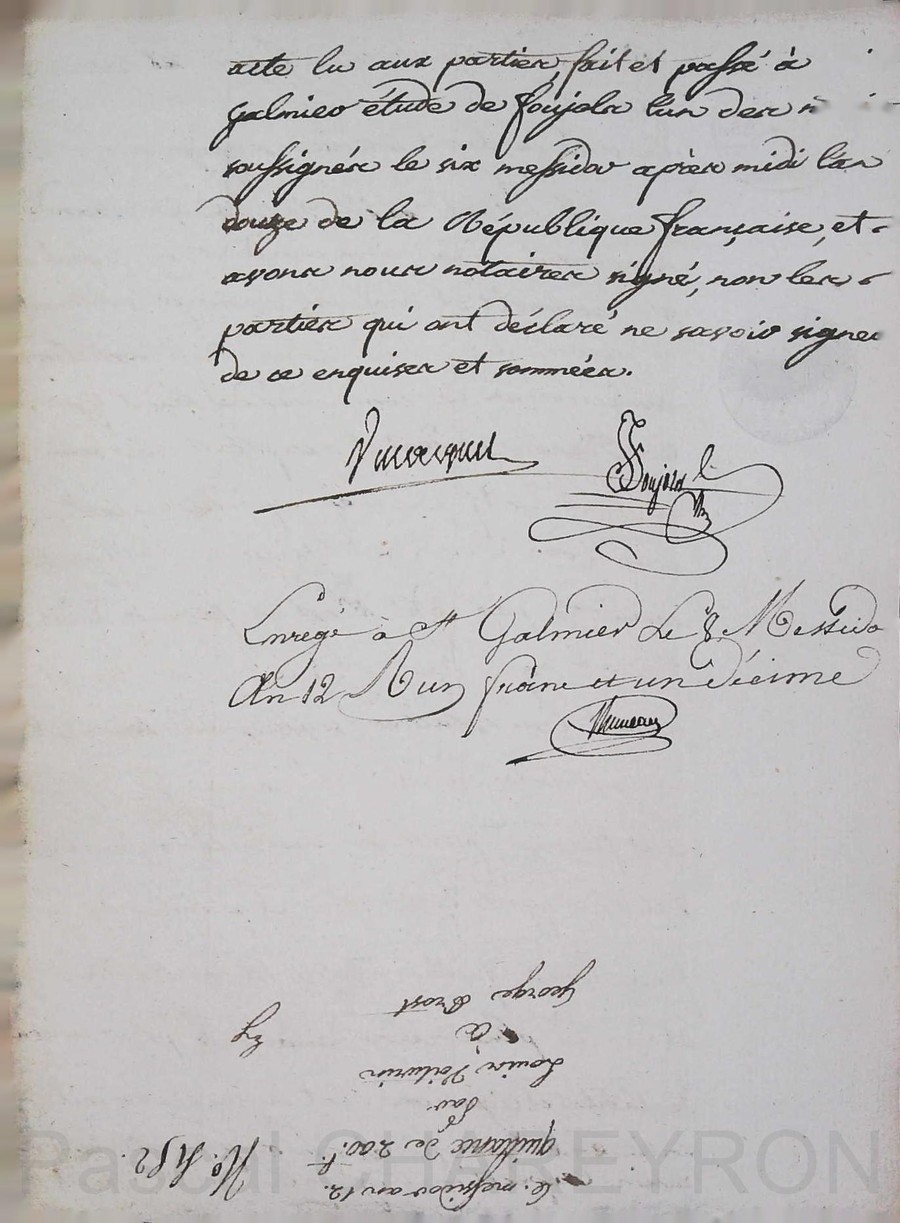 acte lu aux parties, fait et passé à
Galmier étude de Soujols l'un des
soussignés le six messidor après midi l'an
douze de la République française, et
avons nous notaires signé, non les
parties qui ont déclaré ne savoir signer
de ce enquises et sommées.
Enregé à St Galmier Le 8 Messido
An 12 R un franc et un décime
6e. messidor an 12.
quittance de 200. f.
Par
Louis Voiturin
à
George Brost
Pascal CHAREYRON